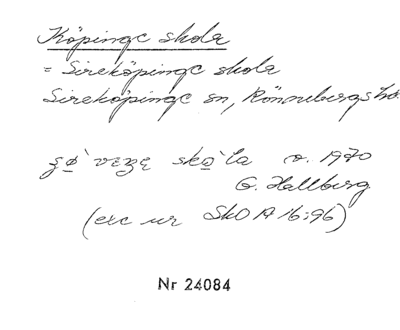 Köpinge skola
= Sireköpinge skola
Sireköpinge sn, Rönnebergs hd.
skǫ̀`la o. 1970
G. Hallberg
(exc ur SkO A 16:96)
Nr 24084